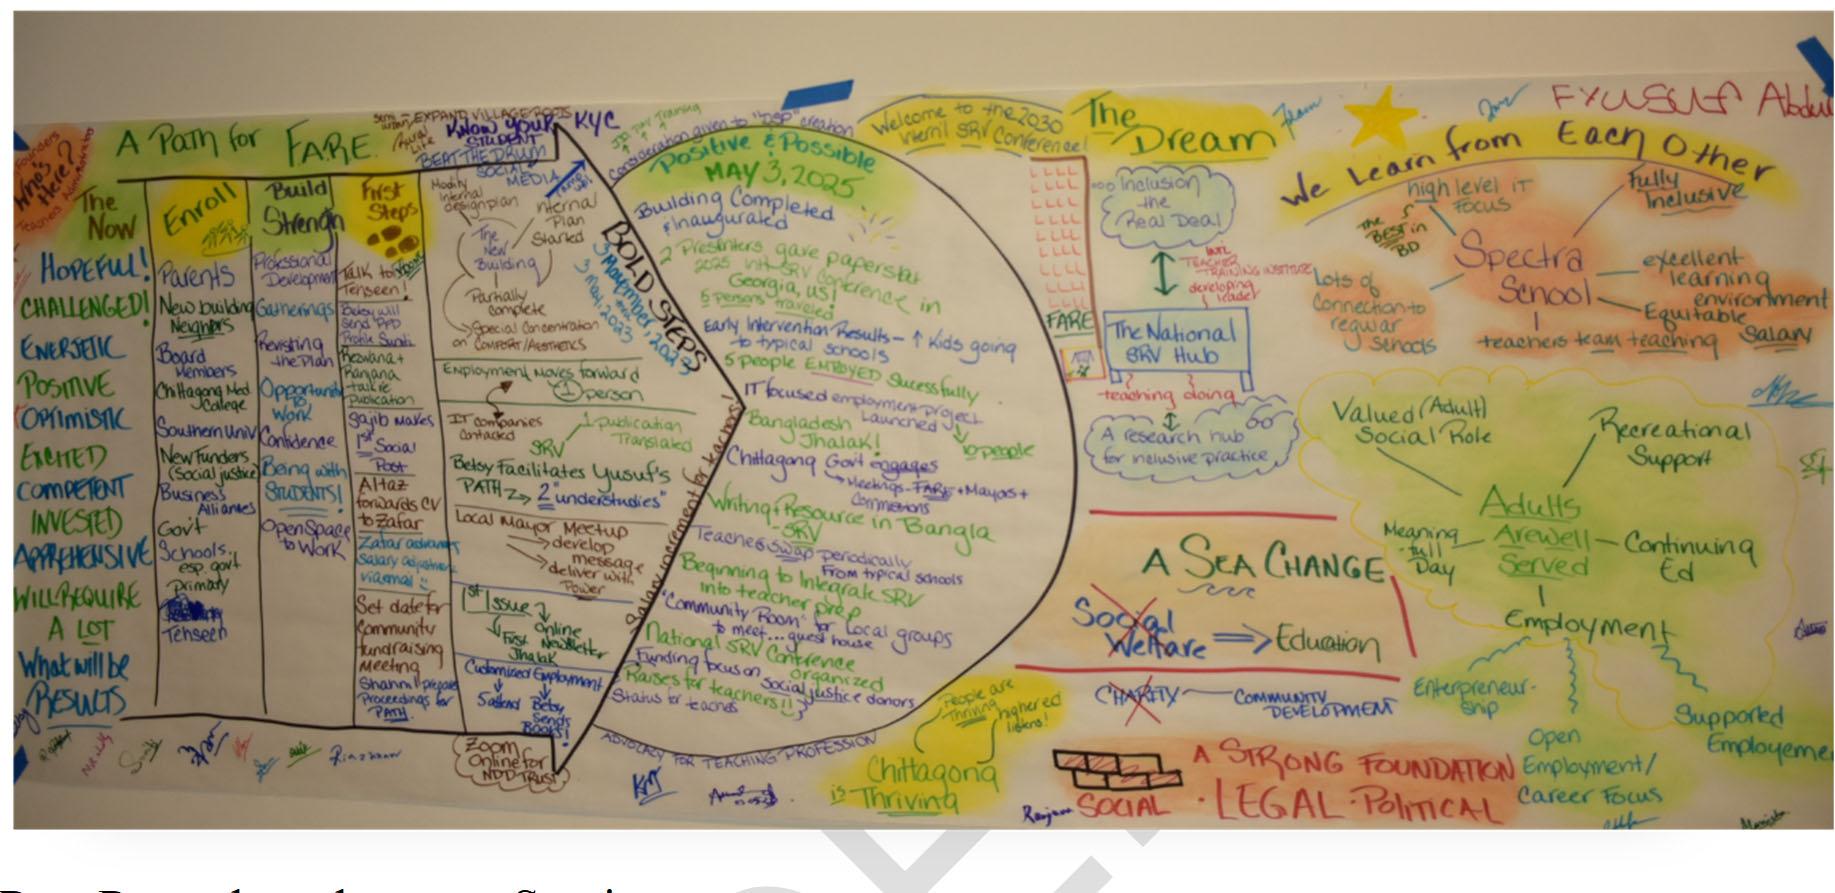 A Path for FARE
EXPAND VILLAGE ROOTS
KNOW YOUR STUDENT
KYC
BEAT THE DRUM
SOCIAL MEDIA
Founders
Who's Here?
Teachers
The Now
HOPEFUL!
CHALLENGED!
ENERJETIC
POSITIVE
OPTIMISTIC
EXCITED
COMPETENT
INVESTED
APPREHENSIVE
WILL REQUIRE
A LOT
What will be
RESULTS
Enroll
Parents
New building
Neighbors
Board
Members
Chittagong Med
College
Southern Univ
New Funders
(Social justice)
Business
Alliances
Gov't
Schools,
esp. gov't
primary
Tehseen
Build
Strength
Professional
Development
Gatherings
Revisiting
the Plan
Opportunity
to
Work
Confidence
Being with
STUDENTS!
Open Space
to Work
First
Steps
Talk to
Tehseen!
Betsy will
Send PPD
Profile
Rezwana +
Ranjana
talk re
publication
Sajib makes
1st Social
Post
Altaz
forwards CV
to Zafar
Zafar advances
salary adjustment
via email
Set date for
Community
fundraising
Meeting
Shanni prepare
Proceedings for
PATH
Modify
internal
design plan
Internal
Plan
Started
The
New
Building
Partially
complete
Special Concentration
on COMFORT/AESTHETICS
Employment moves forward
1 person
IT companies
Contacted
SRV
1 publication
Translated
Betsy Facilitates Yusuf's
PATH 2 "understudies"
Local Mayor Meetup
develop
message
deliver with
Power
1st Issue
Online
First Newsletter
Jhalak
Customized Employment
Betsy
Sends
Books!
Zoom
Online for
NDD-TRUST
BOLD STEPS
3 November, 2023
3 May, 2023
Salary increment for teachers!
Consideration given to "DSP" creation
Positive & Possible
MAY 3, 2025
Building Completed
& Inaugurated
2 Presenters gave papers at
2025 int'l SRV Conference in
Georgia, US!
5 persons traveled
Early Intervention Results - ↑ Kids going
to typical schools
5 people EMPLOYED Sucessfully
IT focused employment project
Launched
10 people
Bangladesh
Jhalak!
Chittagong Gov't engages
Meetings - FARE + Mayors +
Commetions
Writing + Resource in Bangla
- SRV
Teachers swap periodically
From typical schools
Beginning to Integrate SRV
into teacher prep
"Community Room" for Local groups
to meet... guest house
National SRV Conference
organized
Funding focus on social justice donors
Raises for teachers!!
Status for teachers
ADVOCACY FOR TEACHING PROFESSION
Welcome to the 2030
Intern'l SRV Conference!
The
Dream
FARE
Inclusion
the
Real Deal
TEACHER
TRAINING INSTITUTE
developing
leader
The National
SRV Hub
teaching doing
A research hub
for inclusive practice
A SEA CHANGE
Social
Welfare ⇒ Education
CHARITY — COMMUNITY
DEVELOPMENT
People are
Thriving
highered
listens!
Chittagong
is Thriving
A STRONG FOUNDATION
SOCIAL · LEGAL · POLITICAL
Ranjana
FYUSUF Abdul
We Learn from Each Other
high level IT
FOCUS
Fully
Inclusive
The
BEST in
BD
Spectra
School
Lots of
Connection to
regular
schools
excellent
learning
environment
Equitable
Salary
teachers team teaching
Valued (Adult)
Social Role
Recreational
Support
Adults
Are well
Served
Meaning
-full
Day
Continuing
Ed
Employment
Enterpreneur-
ship
Open
Employment/
Career Focus
Supported
Employeme